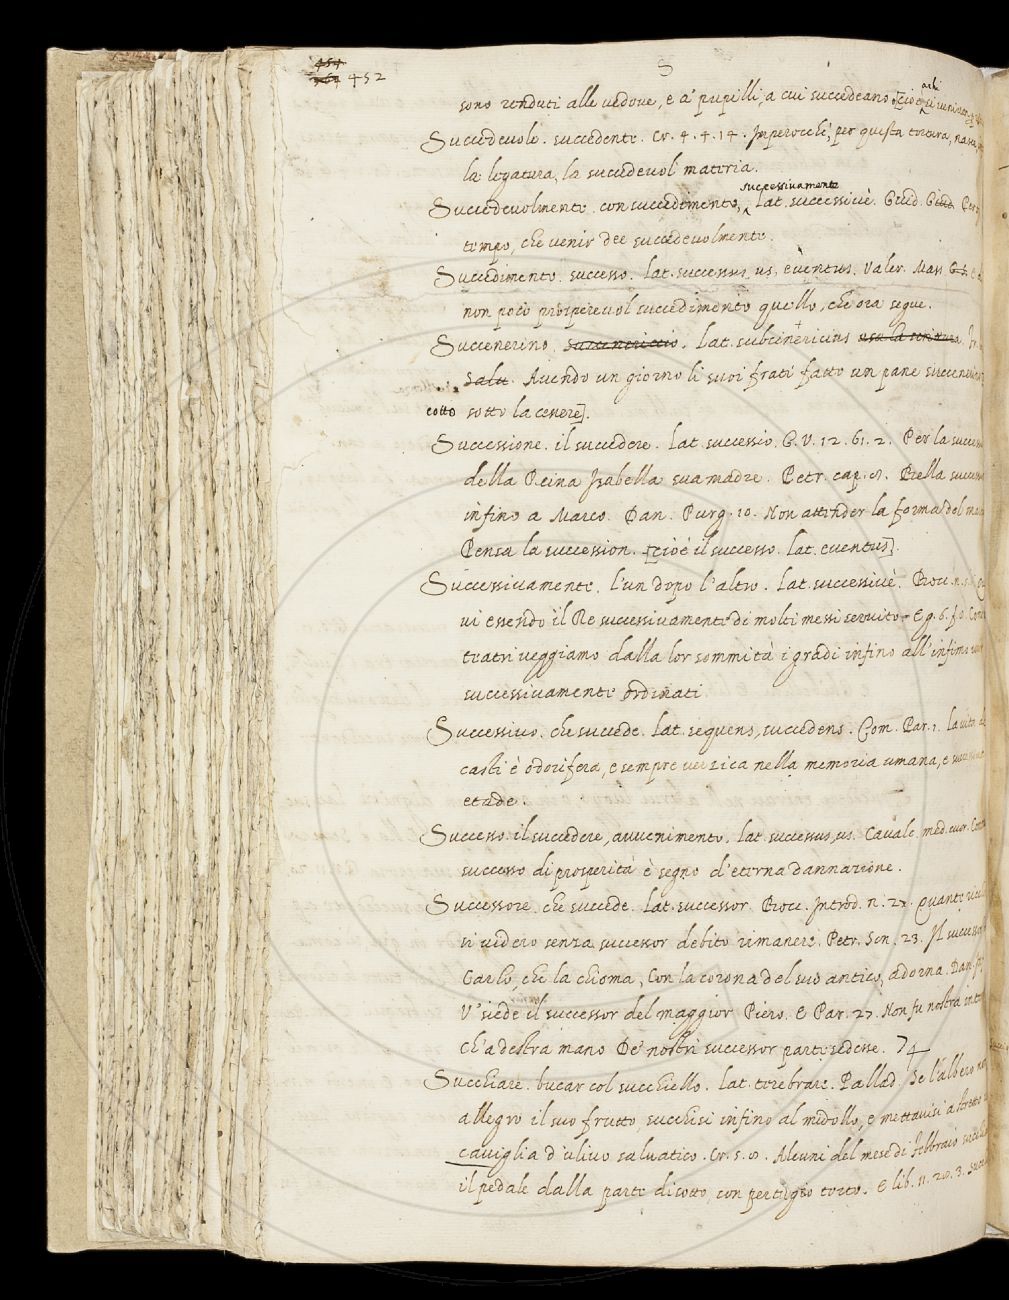 452
S
sono renduti alle vedove, e a' pupilli, a cui succedeano
Succedevole. succedente. Cr. 4. 4. 14. Imperocchè, per questa tortura,
la legatura, la succedevol materia.
successivamente
Succedevolmente. con succedimento, Lat. successiuè. Guid. G.
tempo, che venir dee succedevolmente.
Succedimento. successo. Lat. successus, us, euentus. Valer. Mass.
non poco prosperevol succedimento quello, che ora segue.
Succenerino. Succenericcio. Lat. subcinericius usa la scrittura.
Salu. Avendo un giorno li suoi frati fatto un pane
cotto sotto la cenere].
Successione. il succedere. Lat. successio. G. V. 12. 61. 2. Per la
della Reina Isabella sua madre. Petr. cap. Della
infino a Marco. Dan. Purg. 10. Non attender la forma del
Pensa la succession. [cioè il successo. Lat. euentus].
Successivamente. l'un dopo l'altro. Lat. successiuè. Bocc. n.
ui essendo il Re successivamente di molti messi servito. E g. 6. f.
teatri veggiamo dalla lor sommità i gradi infino all'infimo
successivamente ordinati
Successivo. che succede. Lat. sequens, succedens. Com. Par. 1. La vita
casti è odorifera, e sempre verzica nella memoria umana, e
etade.
Successo. il succedere, avvenimento. Lat. successus, us. Cavalc. med. cuor.
successo di prosperità è segno d'eterna dannazione.
Successore. che succede. Lat. successor. Bocc. Introd. n. 27. Quante
si videro senza successor debito rimanere. Petr. Son. 23. Il
Carlo, che la chioma, Con la corona del suo antico, adorna. Dan.
V' siede il successor del maggior Piero. E Par. 27. Non fu nostra
ch'a destra mano De' nostri successor parte sedesse.
Succhiare. bucar col succhiello. Lat. terebrare. Pallad. Se l'albero
allegro il suo frutto, succhisi infino al midollo, e mettavisi a
caviglia d'ulivo salvatico. Cr. 5. Alcuni del mese di Febbraio
il pedale dalla parte di sotto, con pertugio torto. E lib. 11. 20. 3.